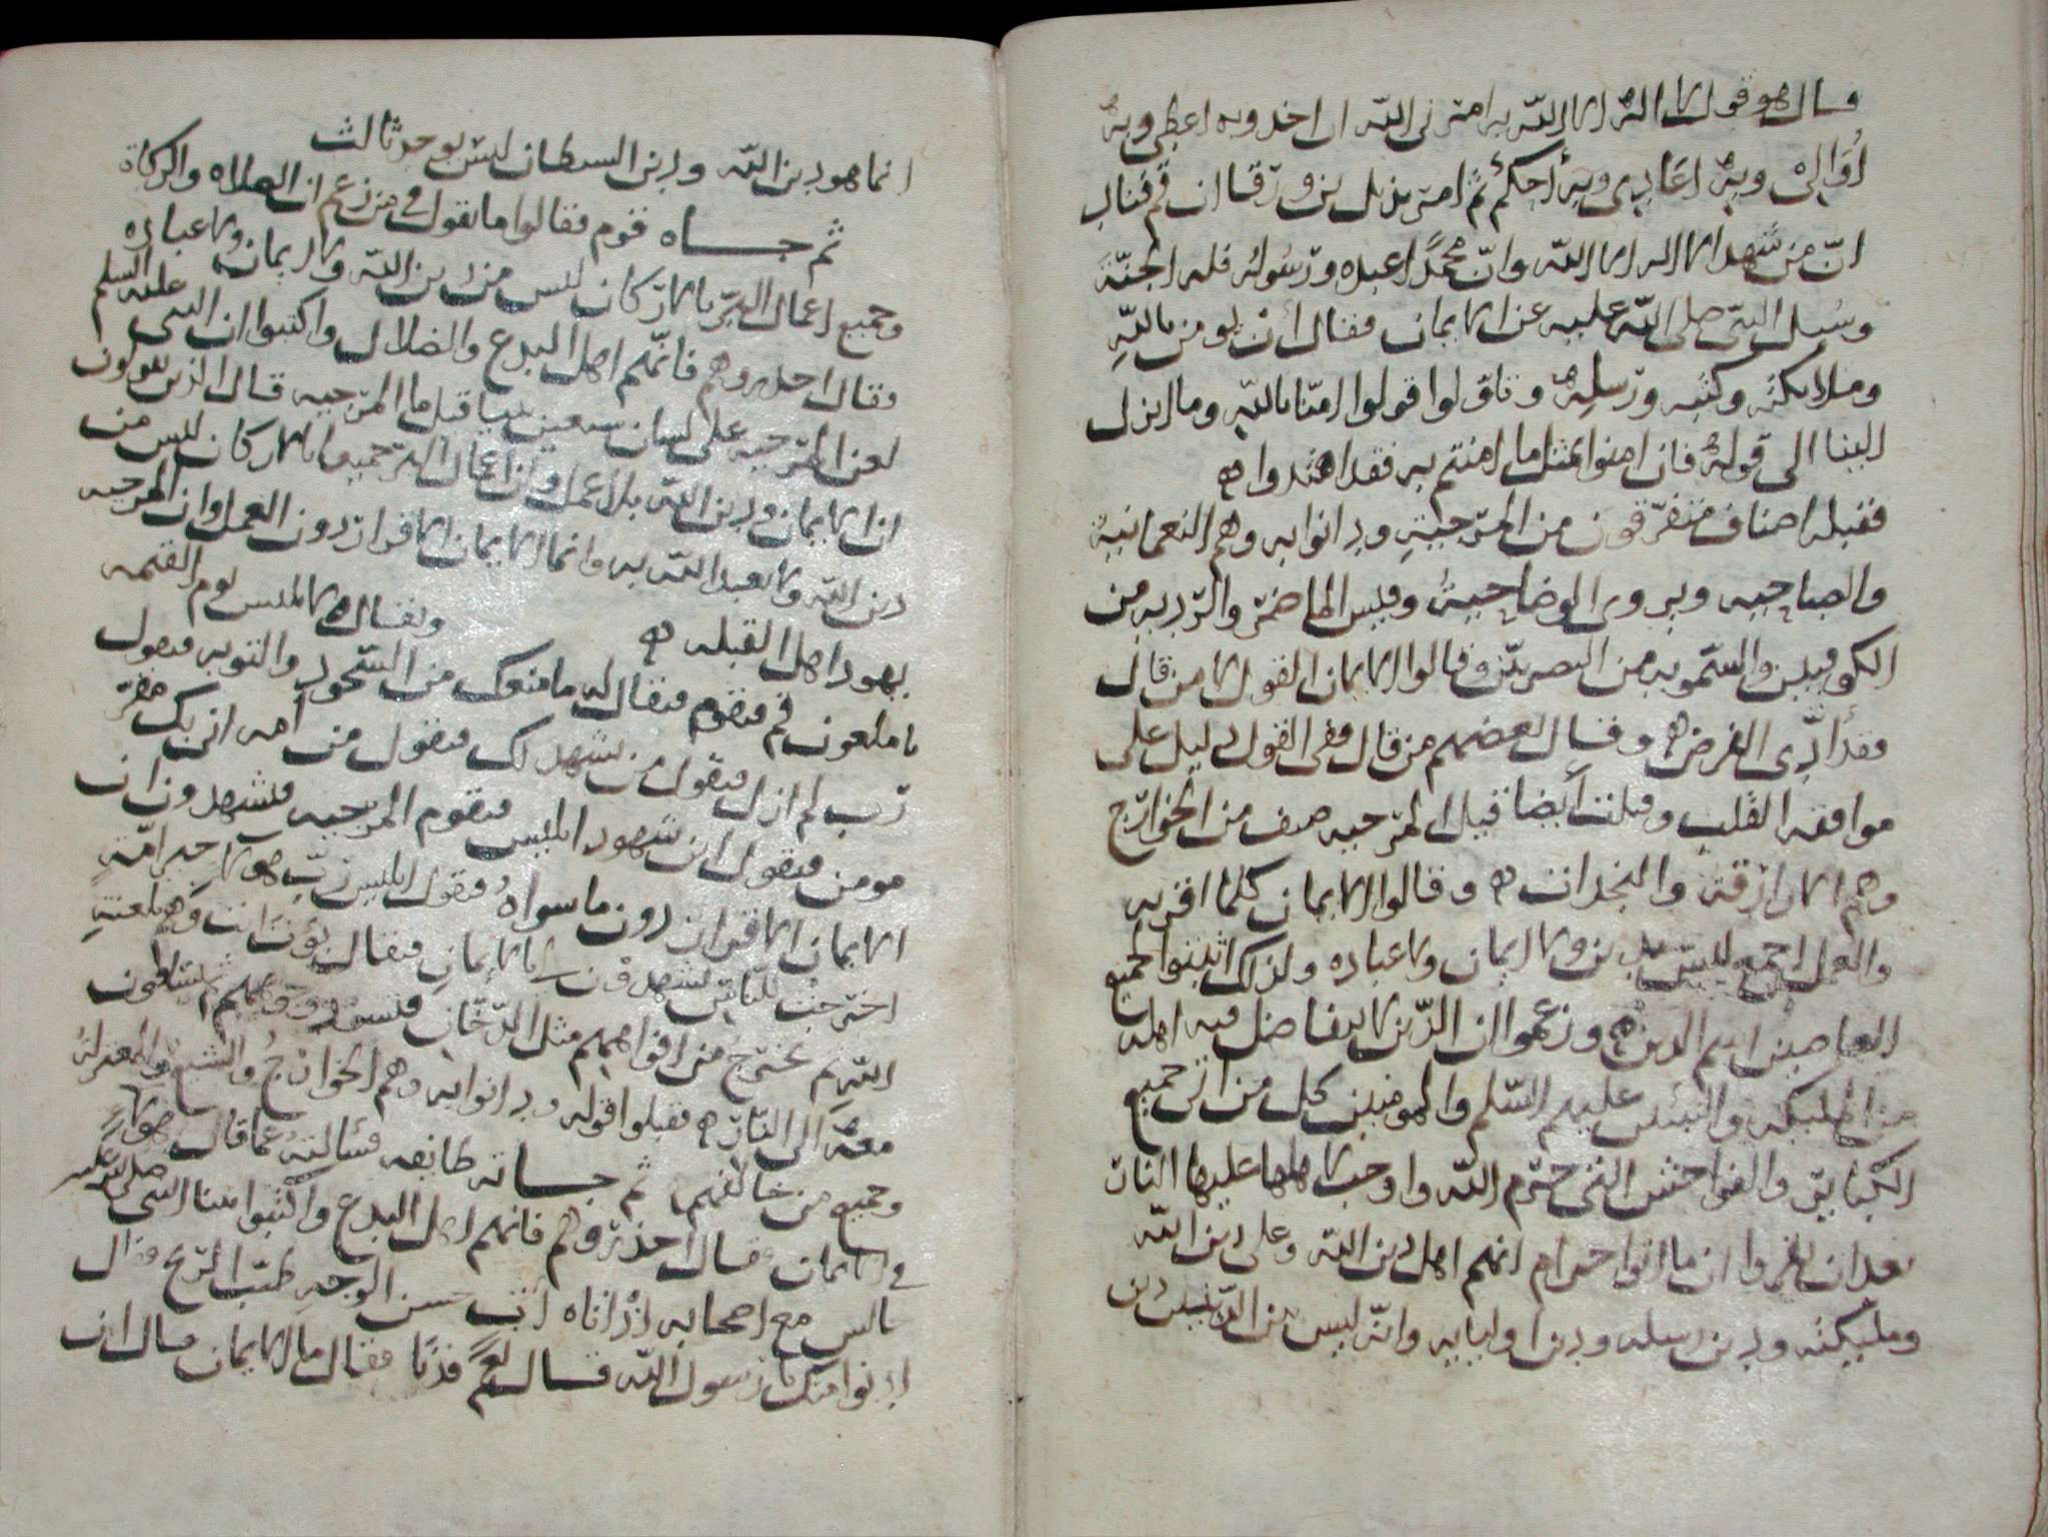 قال هو قول لا اله الا الله به امرني الله ان اخذ وبه اعطي وبه
أوالي وبه اعادي وبه أحكم ثم امر بذيل بن ورقا ان قم فناد
انّ من شهد ان لا اله الا الله وانّ محمدًا عبده ورسوله فله الجنّة
وسيل النبي صلى الله عليه عن الايمان فقال أن تومن بالله
وملائكته وكتبه ورسله وتاوّلوا قولوا امنّا بالله وما انزل
الينا الى قوله فان امنوا بمثل ما امنتم به فقد اهتدوا
فقبله اصناف متفرّقون من المرجية ودانوا به وهم النعمانية
والصباحيه ويروى الوضاحية وقيس الماضر والذريه من
الكوفيين والشمريه من البصريين وقالوا الايمان القول لا من قال
فقد أدّى الفرض وقال بعضهم من قال ففي القول دليل على
موافقه القلب وقلت أيضا قبل المرجيه صنف من الخوارج
وهم الازارقة والنجدات وقالوا الايمان كلما اقر به
والعمل اجمع ليس بدين ولا ايمان ولا عباده ولذلك اثبتوا لجميع
العاصين اسم الدين وزعموا ان الدّين لا يتفاضل فيه اهله
من المليكه والنبيين عليهم السّلم والمومنين كل من اتى جميع
الكبائر والفواحش التي حرّم الله واوجب لاهلها عليها النار
بعد ان يقروا ان ما اتوا حرام انهم اهل دين الله وعلى دين الله
ومليكته ودين رسله ودين اوليايه وانه ليس من الدينين دين
انما هو دين الله ودين الشيطان ليس يوجد ثالث
ثم جاه قوم فقالوا ما تقول في من زعم ان الصلاه والزكاة
وجميع اعمال البرّ بالاركان ليس من دين الله ولا ايمان ولا عباده
فقال احذروهم فانهم اهل البدع والضلال واكتبوا ان النبي عليه السلم
لعن المرجيه على لسان سبعين نبيا قيل ما المرجيه قال الذين يقولون
ان الايمان ودين الله بلا عمل وان اعمال البر جميعا بالاركان ليس من
دين الله ولا يعبد الله به وانما الايمان الاقرار دون العمل وان المرجيه
يهود اهل القبله ويقال لابليس يوم القيمه
يا ملعون قم فيقوم فيقال له ما منعك من السّجود والتوبه فيقول
ربّ لم ازل فيقول من يشهد لك فيقول من امه اني بك مقرّ
مومن فيقول اين شهود ابليس فيقوم المرجيه فيشهدون ان
الايمان الاقرار دون ما سواه فيقول ابليس ربّ هولا خير امّة
اخرجت للناس يشهدون لي بالايمان فيقال بؤت انت وهم بلعنة
الله ثم يخرج من افواههم مثل الدّخان
معه الى النار فقبلوا قوله ودانوا به وهم الخوارج والشيع والمعتزله
وجميع من خالفهم ثم جاته طايفه فسالته عما قال هولاء
في الايمان فقال احذروهم فانهم اهل البدع واكتبوا بينا النبي صلى الله عليه
جالس مع اصحابه اذ اتاه آت حسن الوجه طيّب الريح فقال
ادنوا منك يا رسول الله فقال نعم فدنا فقال ما الايمان قال ان